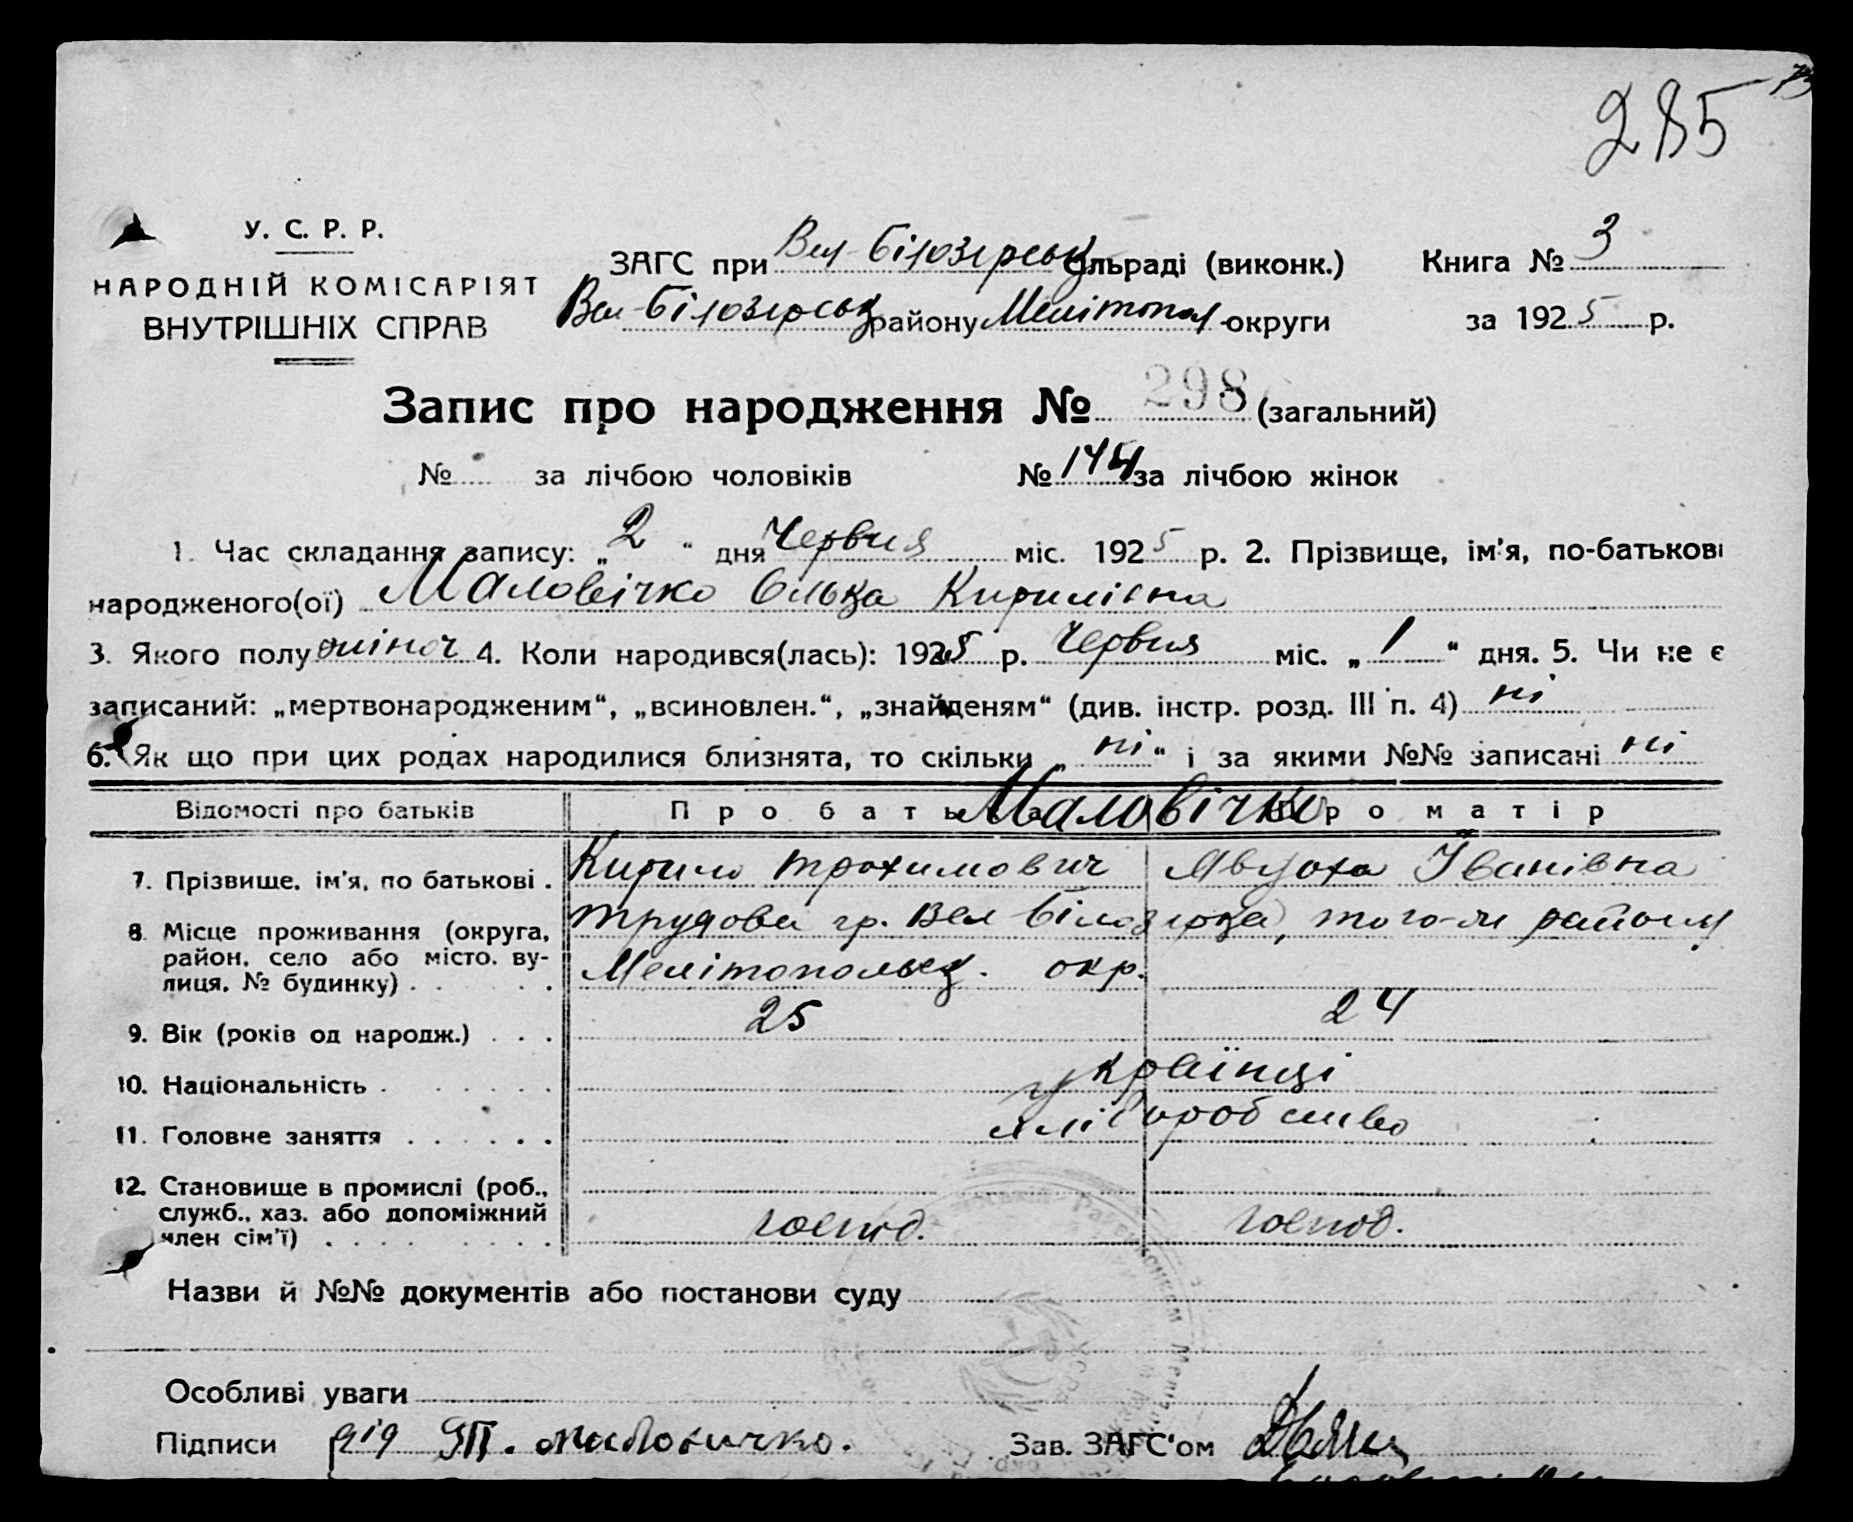 285
У. С. Р. Р.
НАРОДНІЙ КОМІСАРІЯТ
ВНУТРІШНІХ СПРАВ
ЗАГС при Вел-Білозерськ сільраді (виконк.)
Вел-Білозерськ району Мелітопол округи
Книга № 3
за 1925 р.
Запис про народження № 298 (загальний)
№ за лічбою чоловіків № 144 за лічбою жінок
1. Час складання запису: „ 2 “ дня Червня міс. 1925 р. 2. Прізвище, ім'я, по-батькові
народженого(ої) Маловічко Олька Кирилівна
3. Якого полу жіноч 4. Коли народився(лась): 1925 р. Червня міс. „ 1 “ дня. 5. Чи не є
записаний: „мертвонародженим“, „всиновлен.“, „знайденям“ (див. інстр. розд. III п. 4) ні
6. Як що при цих родах народилися близнята, то скільки „ ні “ і за якими №№ записані ні
Відомості про батьків Про батька Про матір
Маловічко
7. Прізвище, ім'я, по батькові . Кирило Трохимович Явдоха Іванівна
8. Місце проживання (округа, район, село або місто, вулиця, № будинку) . . . гр. Вел Білозерка, того-ж району
Мелітопольськ. окр.
9. Вік (років од народж.) . . . 25 24
10. Національність . . . . . . українці
11. Головне заняття . . . . . . хліборобство
12. Становище в промислі (роб.,
служб., хаз. або допоміжний
член сім'ї) . . . . . . . господ. господ.
Назви й №№ документів або постанови суду
Особливі уваги
Підписи дід Маловичко. Зав. ЗАГС'ом